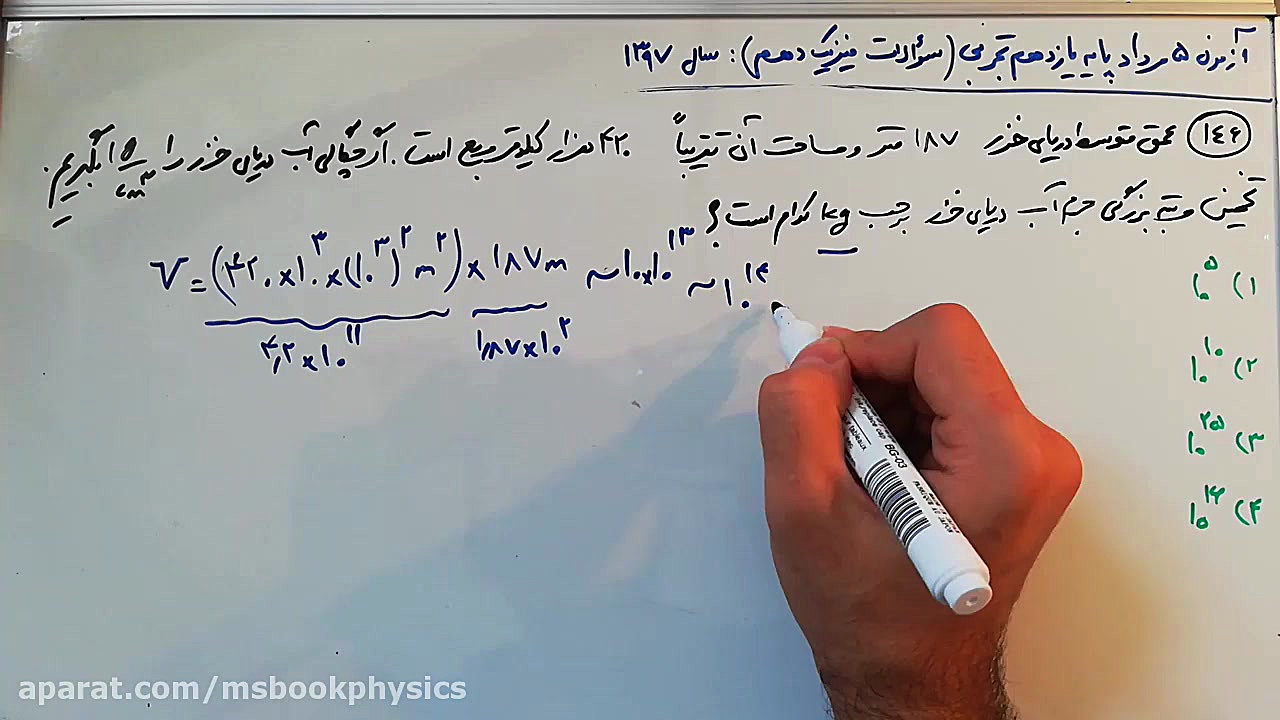 آزمون ۵ مرداد پایه یازدهم تجربی (سؤالات فیزیک دهم): سال ۱۳۹۷
۱۴۶ عمق متوسط دریای خزر ۱۸۷ متر و مساحت آن تقریباً ۴۲۰ هزار کیلومتر مربع است. اگر چگالی آب دریای خزر را ۱ g/cm³ بگیریم.
تخمین مرتبه بزرگی جرم آب دریای خزر برحسب kg کدام است؟
V = (۴۲۰ × ۱۰^۳ × (۱۰^۳)^۲ m^۲) × ۱۸۷ m ~ ۱۰ × ۱۰^۱۳ ~ ۱۰^۱۴
۴٫۲ × ۱۰^۱۱ ۱٫۸۷ × ۱۰^۲
۱) ۱۰^۵
۲) ۱۰^۱۰
۳) ۱۰^۲۵
BG-03
aparat.com/msbookphysics